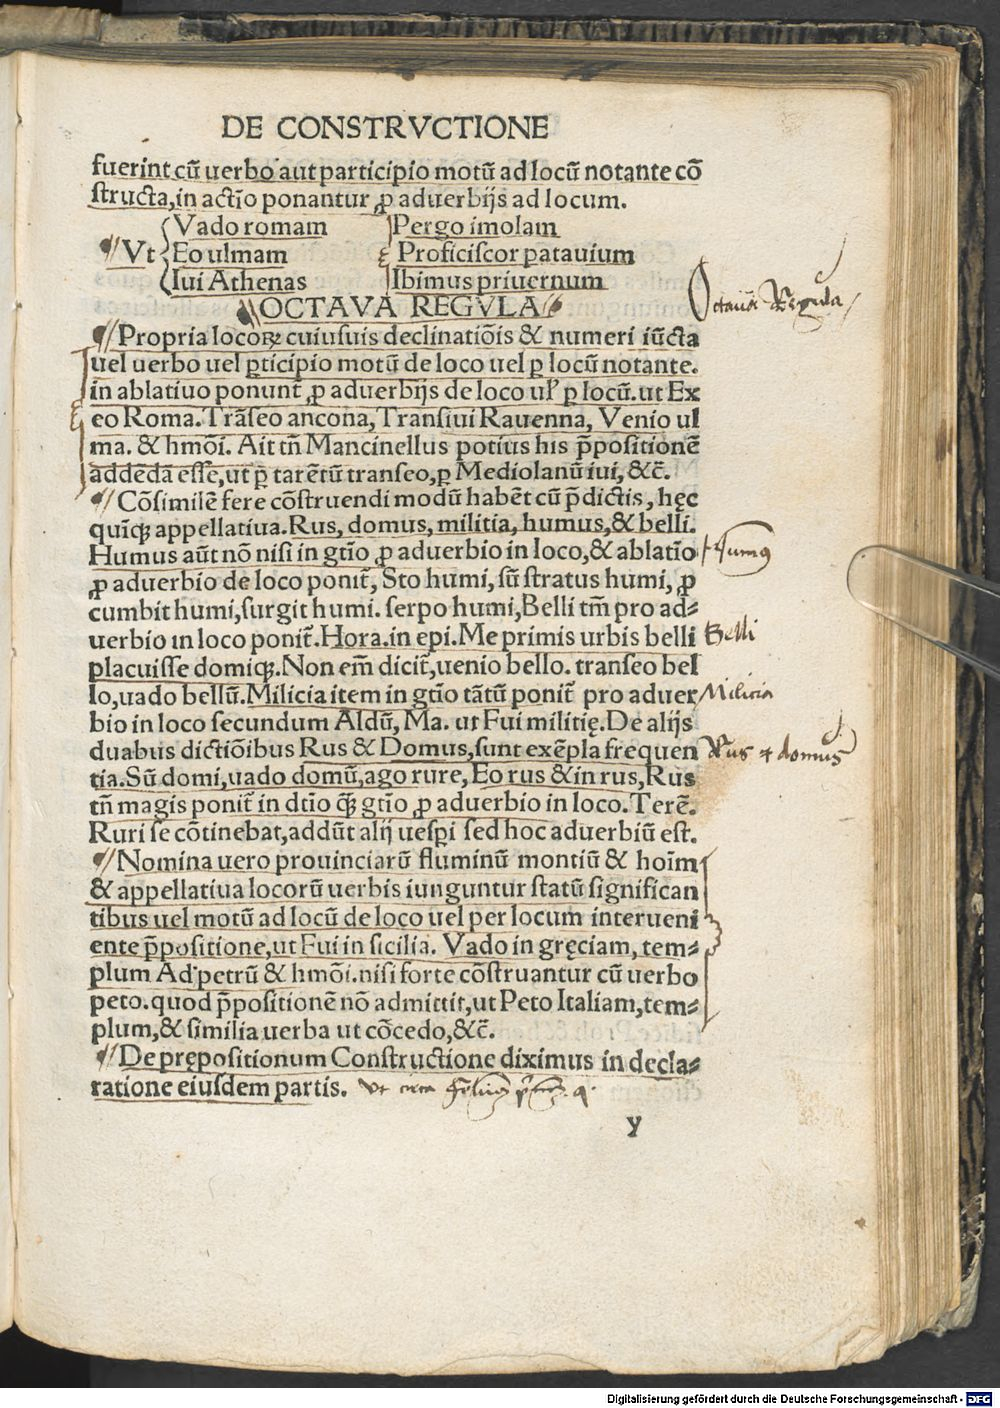 DE CONSTRVCTIONE
fuerint cū uerbo aut participio motū ad locū notante cō
structa, in actīo ponantur ꝓ aduerbijs ad locum.
Vado romam Pergo imolam
Vt Eo ulmam Proficiscor patauium
Iui Athenas Ibimus priuernum
OCTAVA REGVLA
Octaua Regula
Propria locoꝝ cuiusuis declinatiōis & numeri iūcta
uel uerbo uel ꝑticipio motū de loco uel ꝑ locū notante.
in ablatiuo ponunt̄ ꝓ aduerbijs de loco uł ꝑ locū. ut Ex
eo Roma. Trāseo ancona, Transiui Rauenna, Venio ul
ma. & hmōi. Ait tn̄ Mancinellus potius his p̄positionē
addēdā esse, ut ꝑ tarētū transeo, ꝑ Mediolanū iui, &c̄.
Cōsimilē fere cōstruendi modū habēt cū p̄dictis, hęc
quīqꝫ appellatiua. Rus, domus, militia, humus, & belli.
Humus aūt nō nisi in gtīo ꝓ aduerbio in loco, & ablatīo
Humus
ꝓ aduerbio de loco ponit̄, Sto humi, sū stratus humi, ꝓ
cumbit humi, surgit humi. serpo humi, Belli tm̄ pro ad-
uerbio in loco ponit̄. Hora. in epi. Me primis urbis belli
Belli
placuisse domiqꝫ. Non em̄ dicit̄, uenio bello. transeo bel
lo, uado bellū. Milicia item in gtīo tātū ponit̄ pro aduer
Milicia
bio in loco secundum Aldū, Ma. ut Fui militię. De alijs
duabus dictiōibus Rus & Domus, sunt exēpla frequen
Rus et domus
tia. Sū domi, uado domū, ago rure, Eo rus & in rus, Rus
tn̄ magis ponit̄ in dtīo qꝫ̄ gtīo ꝓ aduerbio in loco. Terē.
Ruri se cōtinebat, addūt alij uesꝑi sed hoc aduerbiū est.
Nomina uero prouinciarū fluminū montiū & hoīm
& appellatiua locorū uerbis iunguntur statū significan
tibus uel motū ad locū de loco uel per locum interueni
ente p̄positione, ut Fui in sicilia. Vado in gręciam, tem-
plum Ad petrū & hmōi. nisi forte cōstruantur cū uerbo
peto. quod p̄positionē nō admittit, ut Peto Italiam, tem-
plum, & similia uerba ut cōcedo, &c̄.
De prępositionum Constructione diximus in decla-
ratione eiusdem partis.
y
Digitalisierung gefördert durch die Deutsche Forschungsgemeinschaft - DFG